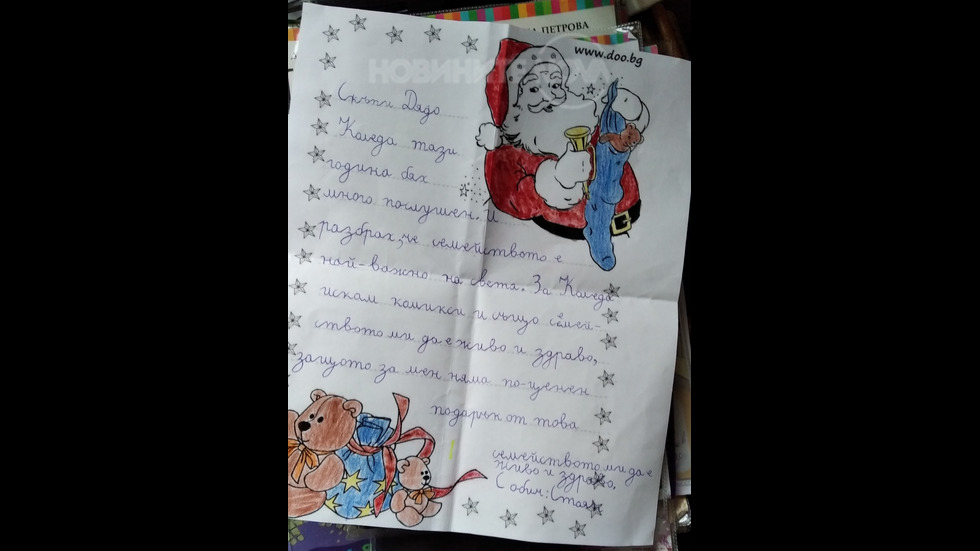 А ПЕТРОВА
www.doo.bg
НОВИНИТЕ
Скъпи Дядо
Коледа тази
година бях
много послушен. И
разбрах, че семейството е
най-важно на света. За Коледа
искам комикси и също семей-
ството ми да е живо и здраво,
защото за мен няма по-ценен
подарък от това
семейството ми да е
живо и здраво.
С обич: